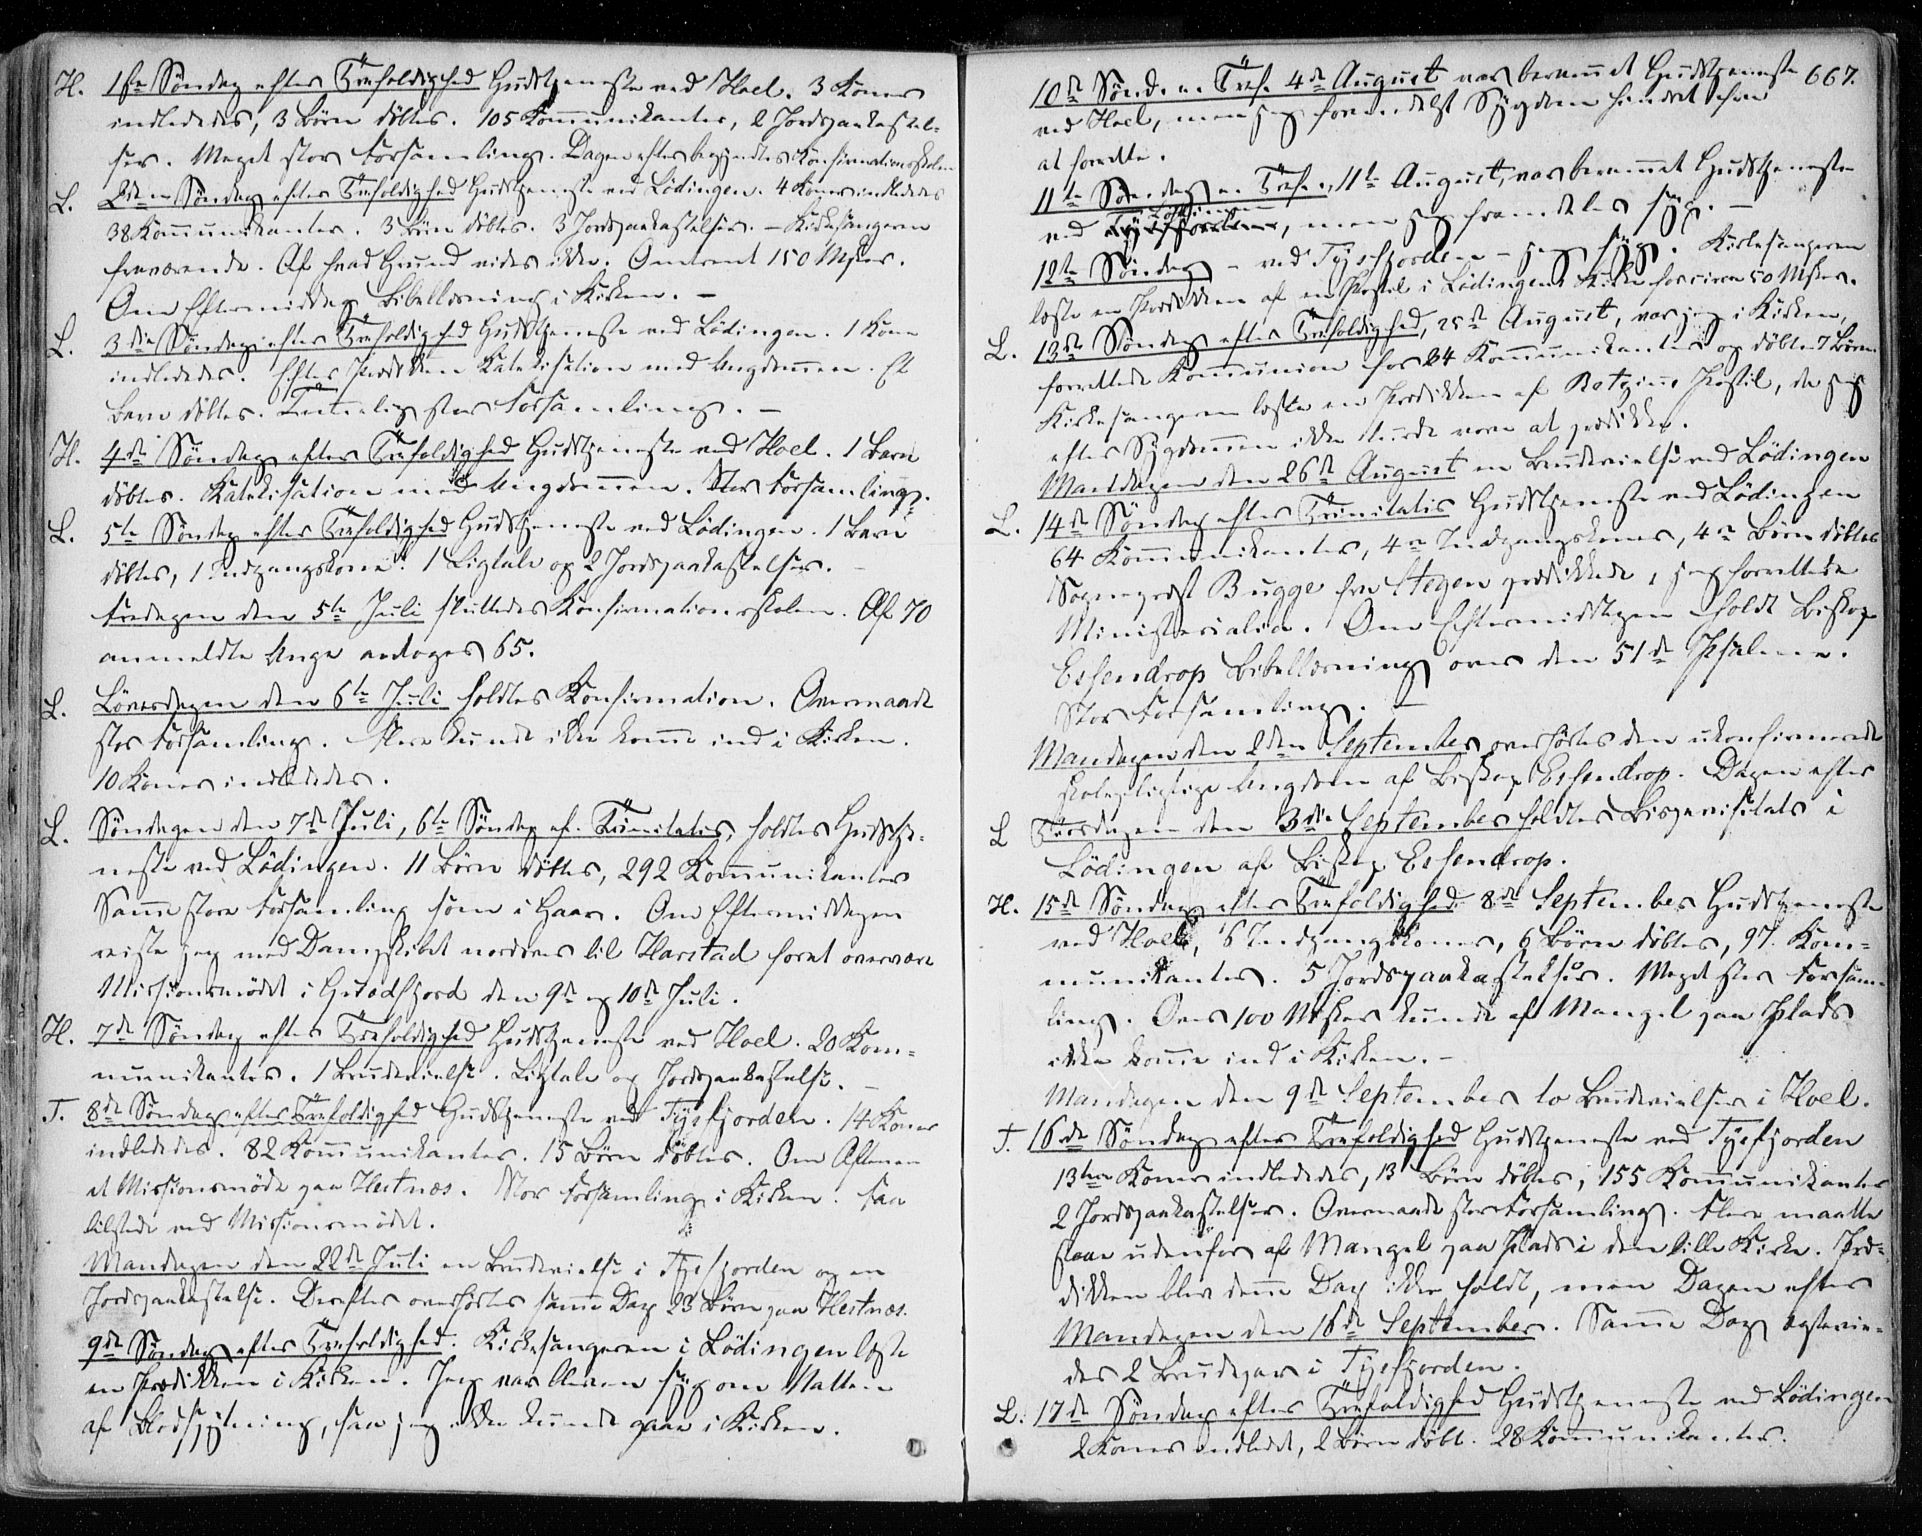 H. 1ste Søndag efter Trefoldighed Gudstjeneste ved Hoel. 3 Koner
indlededes, 3 Børn døbtes. 105 Kommunikanter, 2 Jordspaakastel-
ser. Meget stor Forsamling. Dagen efter begyndtes Konfirmationsskolen
L. 2den Søndag efter Trefoldighed Gudstjeneste ved Lödingen. 4 Koner indlededes
38 Kommunikanter. 3 Børn døbtes. 3 Jordspaakastelser. – Kirkesangeren
fraværende. Af hvad Grund vides ikke. Omtrent 150 Msker.
Om Eftermiddag Bibellæsning i Kirken. –
L. 3die Søndag efter Trefoldighed Gudstjeneste ved Lödingen. 1 Kone
indlededes. Efter Prædiken Katekisation med Ungdommen. Et
Barn døbtes. Temmelig stor Forsamling. –
H. 4de Søndag efter Trefoldighed Gudstjeneste ved Hoel. 1 Barn
døbtes. Katekisation med Ungdommen. Stor Forsamling.
L. 5te Søndag efter Trefoldighed Gudstjeneste ved Lödingen. 1 Barn
døbtes, 1 Indgangskone. 1 Ligtale og 2 Jordspaakastelser. –
Fredagen den 5te Juli sluttedes Konfirmationsskolen. Af 70
anmeldte Unge antoges 65.
L. Löverdagen den 6te Juli holdtes Konfirmation. Overmaade
stor Forsamling. Flere kunde ikke komme ind i Kirken.
10 Koner indlededes.
L. Søndagen den 7de Juli, 6te Søndag ef. Trinitatis, holdtes Gudstje-
neste ved Lödingen. 11 Børn døbtes, 292 Kommunikanter
Samme store Forsamling som i Gaar. Om Eftermiddagen
reiste jeg med Dampskibet nordover til Harstad forat overvære
Missionsmødet i Gisedfjord den 9de og 10de Juli.
H. 7de Søndag efter Trefoldighed Gudstjeneste ved Hoel. 20 Kom-
munikanter. 1 Brudevielse. Ligtale og Jordspaakastelse. –
T. 8de Søndag efter Trefoldighed Gudstjeneste ved Tysfjorden. 14 Koner
indlededes. 82 Kommunikanter. 15 Børn döbtes. Om Aftenen
et Missionsmøde paa Hestnæs. Stor Forsamling i Kirken. Faa
tilstede ved Missionsmødet.
Mandagen den 22de Juli en Brudevielse i Tysfjorden og en
Jordspaakastelse. Derefter overhørtes samme Dag 23 Børn paa Hestnæs.
9de Søndag efter Trefoldighed. Kirkesangeren i Lödingen læste
en Prædiken i Kirken. Jeg var bleven syg om Natten
af Blodspytning, saa jeg ikke kunde gaae i Kirken.
667.
10de Sønd. e. Tref. 4de August var berammet Gudstjeneste
ved Hoel, men jeg formedelst Sygdom hindret fra
at forrette.
11te Søndag e. Tref., 11te August, var berammet Gudstjeneste
ved Lödingen, men jeg fremdeles syg. –
12te Søndag – ved Tysfjorden – jeg syg. Kirkesangeren
læste en Prædiken af en Postil i Lödingens Kirke for circa 50 Msker.
L. 13de Søndag efter Trefoldighed, 25de August, var jeg i Kirken,
forrettede Kommunion for 24 Kommunikanter og døbte 7 Børn
Kirkesangeren læste en Prædiken af Rotzius Postil, da jeg
efter Sygdommen ikke turde vove at prædike.
Mandagen den 26de August en Brudevielse ved Lödingen
L. 14de Søndag efter Trinitatis Gudstjeneste ved Lödingen
64 Kommunikanter, 4re Indgangskoner, 4re Børn döbtes
Sogneprest Bugge fra Stegen prædikede, jeg forrettede
Ministerialia. Om Eftermiddagen holdt Biskop
Essendrop Bibellæsning over den 51de Psalme.
Stor Forsamling. –
Mandagen den 2den September overhørtes den ukonfirmerede
skolepligtige Ungdom af Biskop Essendrop. Dagen efter
L Tirsdagen den 3die September holdtes Bispevisitats i
Lödingen af Biskop Essendrop.
H. 15de Søndag efter Trefoldighed 8de September Gudstjeneste
ved Hoel, 6 Indgangskoner, 6 Børn døbtes, 97 Kom-
munikanter. 5 Jordspaakastelser. Meget stor Forsam-
ling. Over 100 Msker kunde af Mangel paa Plads
ikke komme ind i Kirken. –
Mandagen den 9de September to Brudevielser i Hoel.
T. 16de Søndag efter Trefoldighed Gudstjeneste ved Tysfjorden
13ten Koner indlededes, 13 Børn døbtes, 155 Kommunikanter
2 Jordspaakastelser. Overmaade stor Forsamling. Flere maatte
staae udenfor af Mangel paa Plads i den lille Kirke. Præ-
diken blev denne Dag ikke holdt, men Dagen efter
Mandagen den 16de September. Samme Dag ægtevie-
des 2 Brudepar i Tysfjorden.
L. 17de Søndag efter Trefoldighed Gudstjeneste ved Lödingen
2 Koner indledet, 2 Børn döbt. 28 Kommunikanter.